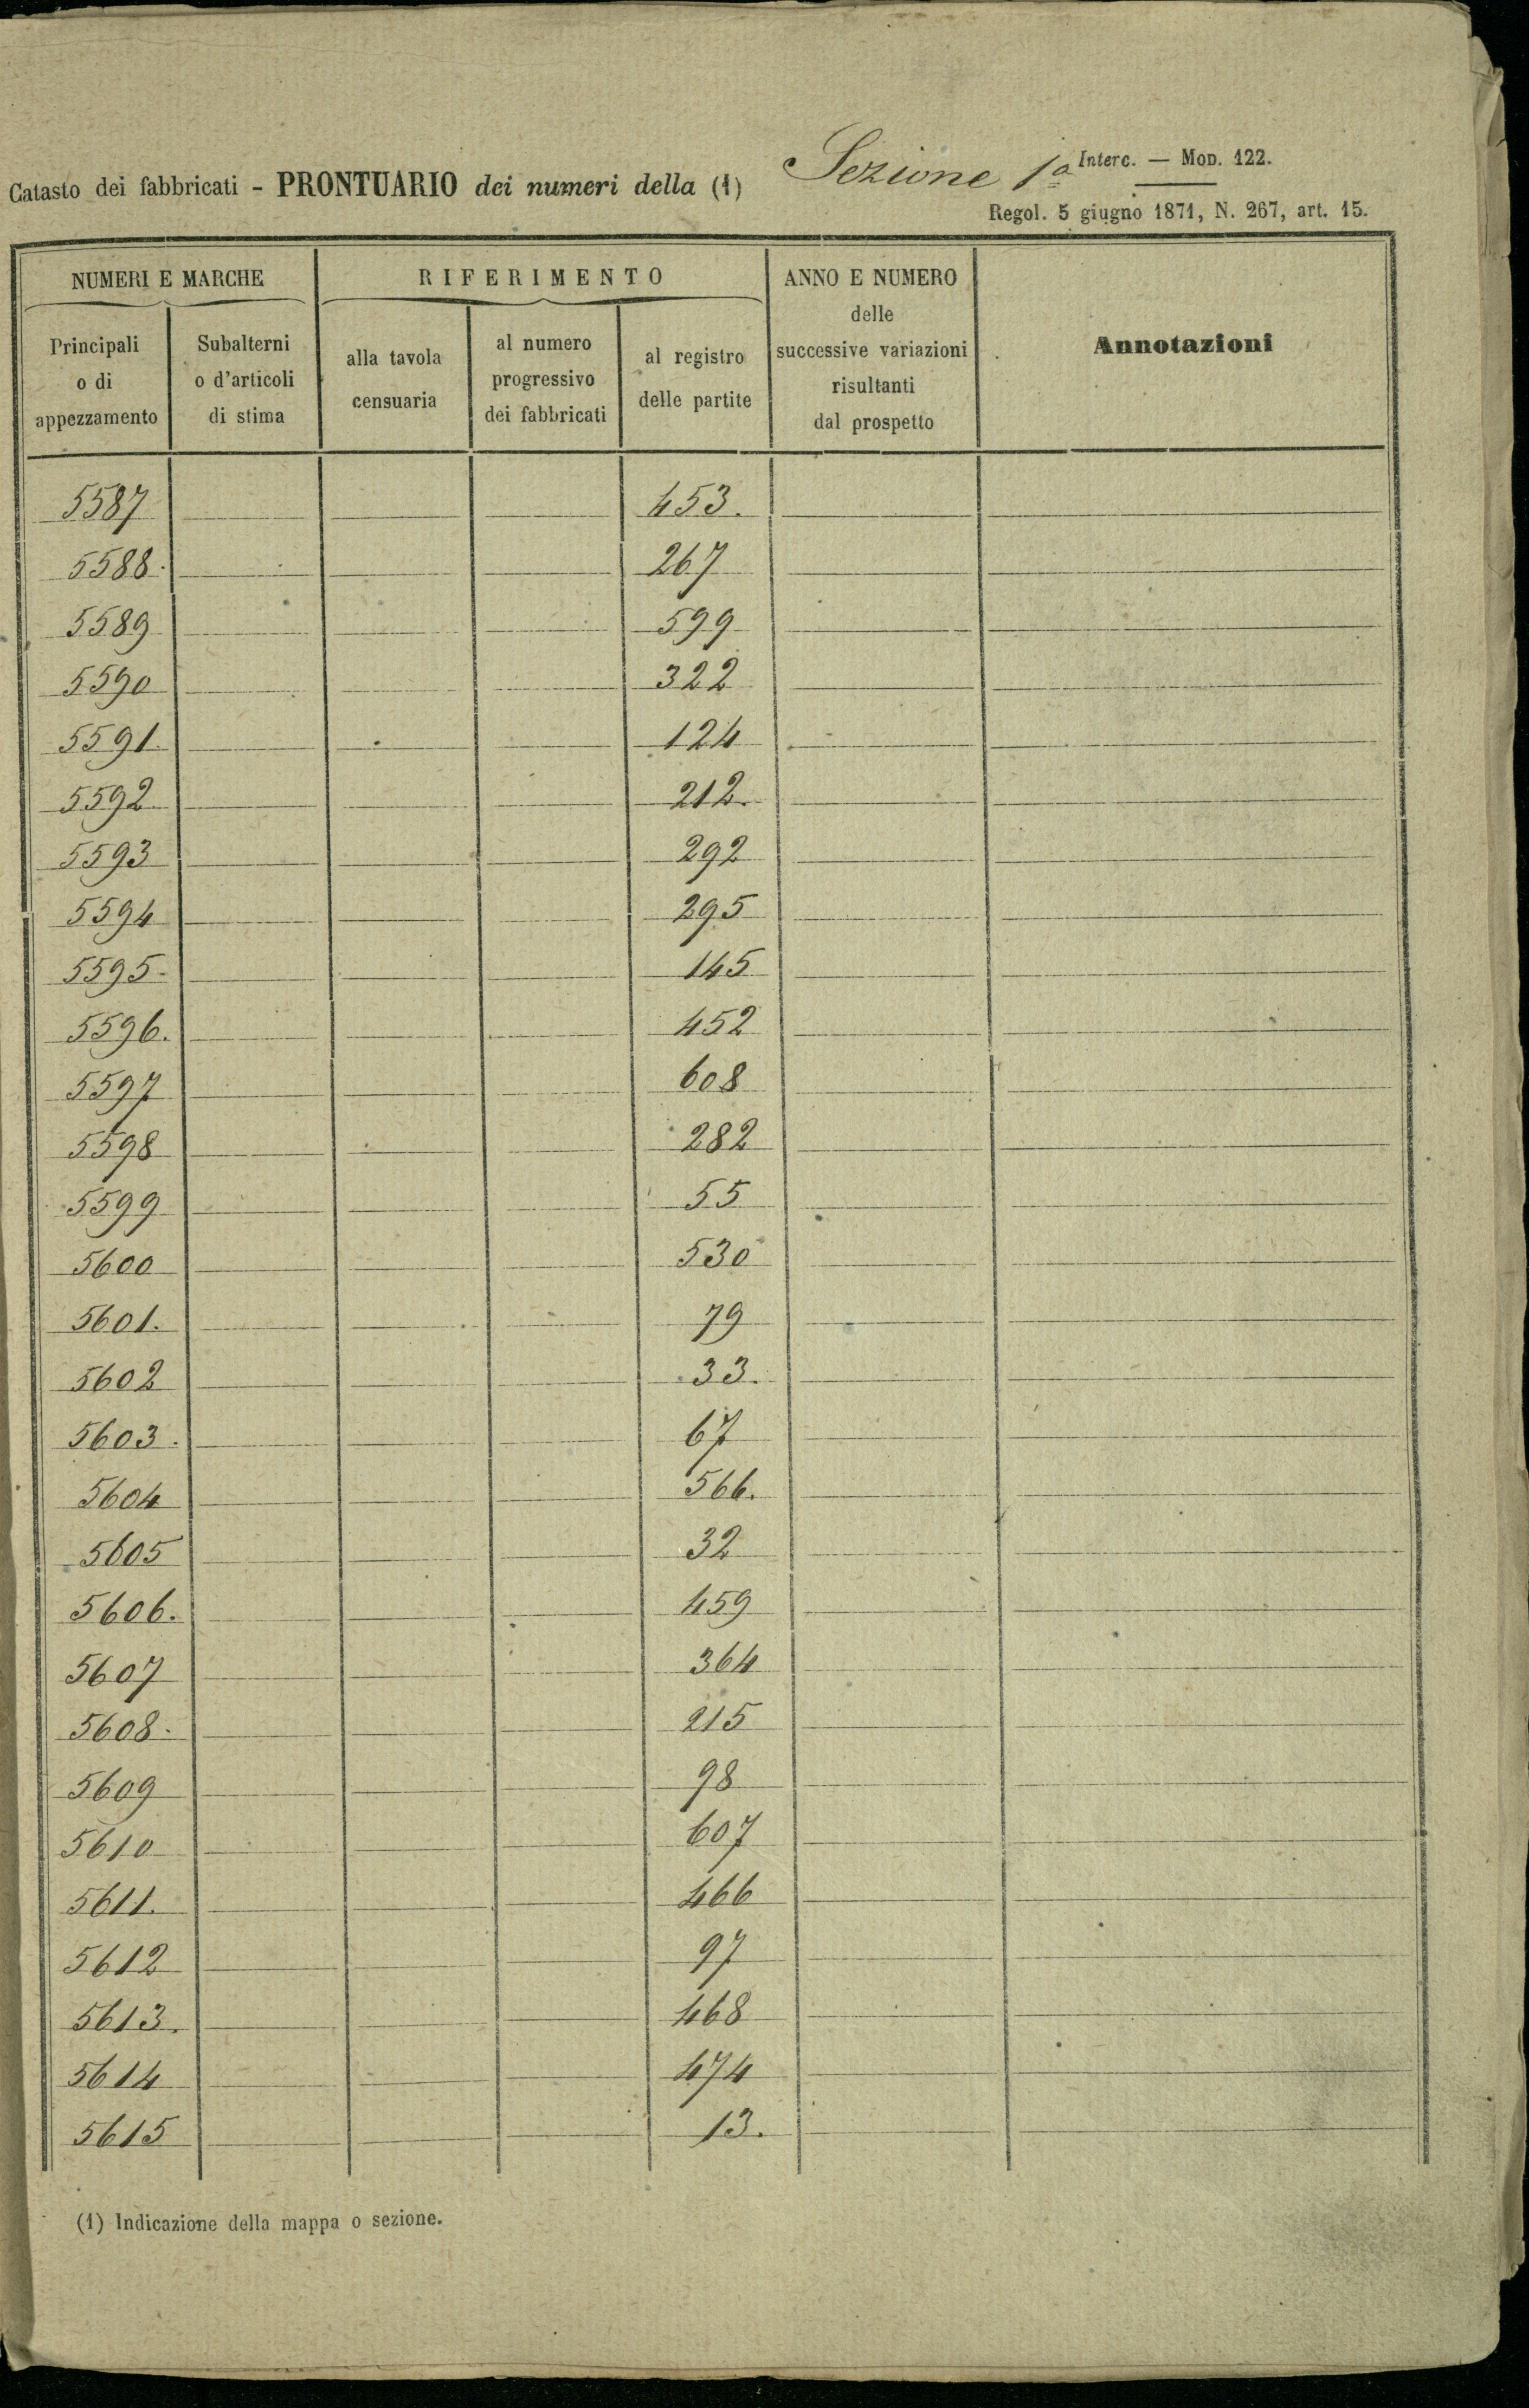 Catasto dei fabbricati - PRONTUARIO dei numeri della (1) Sezione 1ª
Interc. — Mod. 122.
Regol. 5 giugno 1871, N. 267, art. 15.
NUMERI E MARCHE
Principali
o di
appezzamento
Subalterni
o d'articoli
di stima
RIFERIMENTO
alla tavola
censuaria
al numero
progressivo
dei fabbricati
al registro
delle partite
ANNO E NUMERO
delle
successive variazioni
risultanti
dal prospetto
Annotazioni
5587 453.
5588. 267
5589 599
5590 322
5591. 124
5592 212.
5593 292
5594 295
5595. 145
5596. 452
5597 608
5598 282
5599 55
5600 530
5601. 79
5602 33.
5603. 67
5604 566.
5605 32
5606. 459
5607 364
5608. 215
5609 98
5610 607
5611. 466
5612 97
5613. 468
5614 474
5615 13.
(1) Indicazione della mappa o sezione.